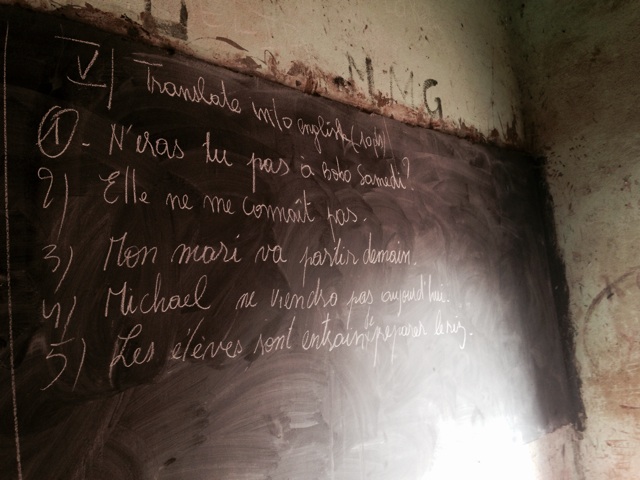 MMG
V) Translate into english (10pts)
1 - N'eras tu pas à Bobo Samedi?
2) Elle ne me connaît pas.
3) Mon mari va partir demain.
4) Michael ne viendra pas aujourd'hui.
5) Les élèves sont entrain de préparer le riz.